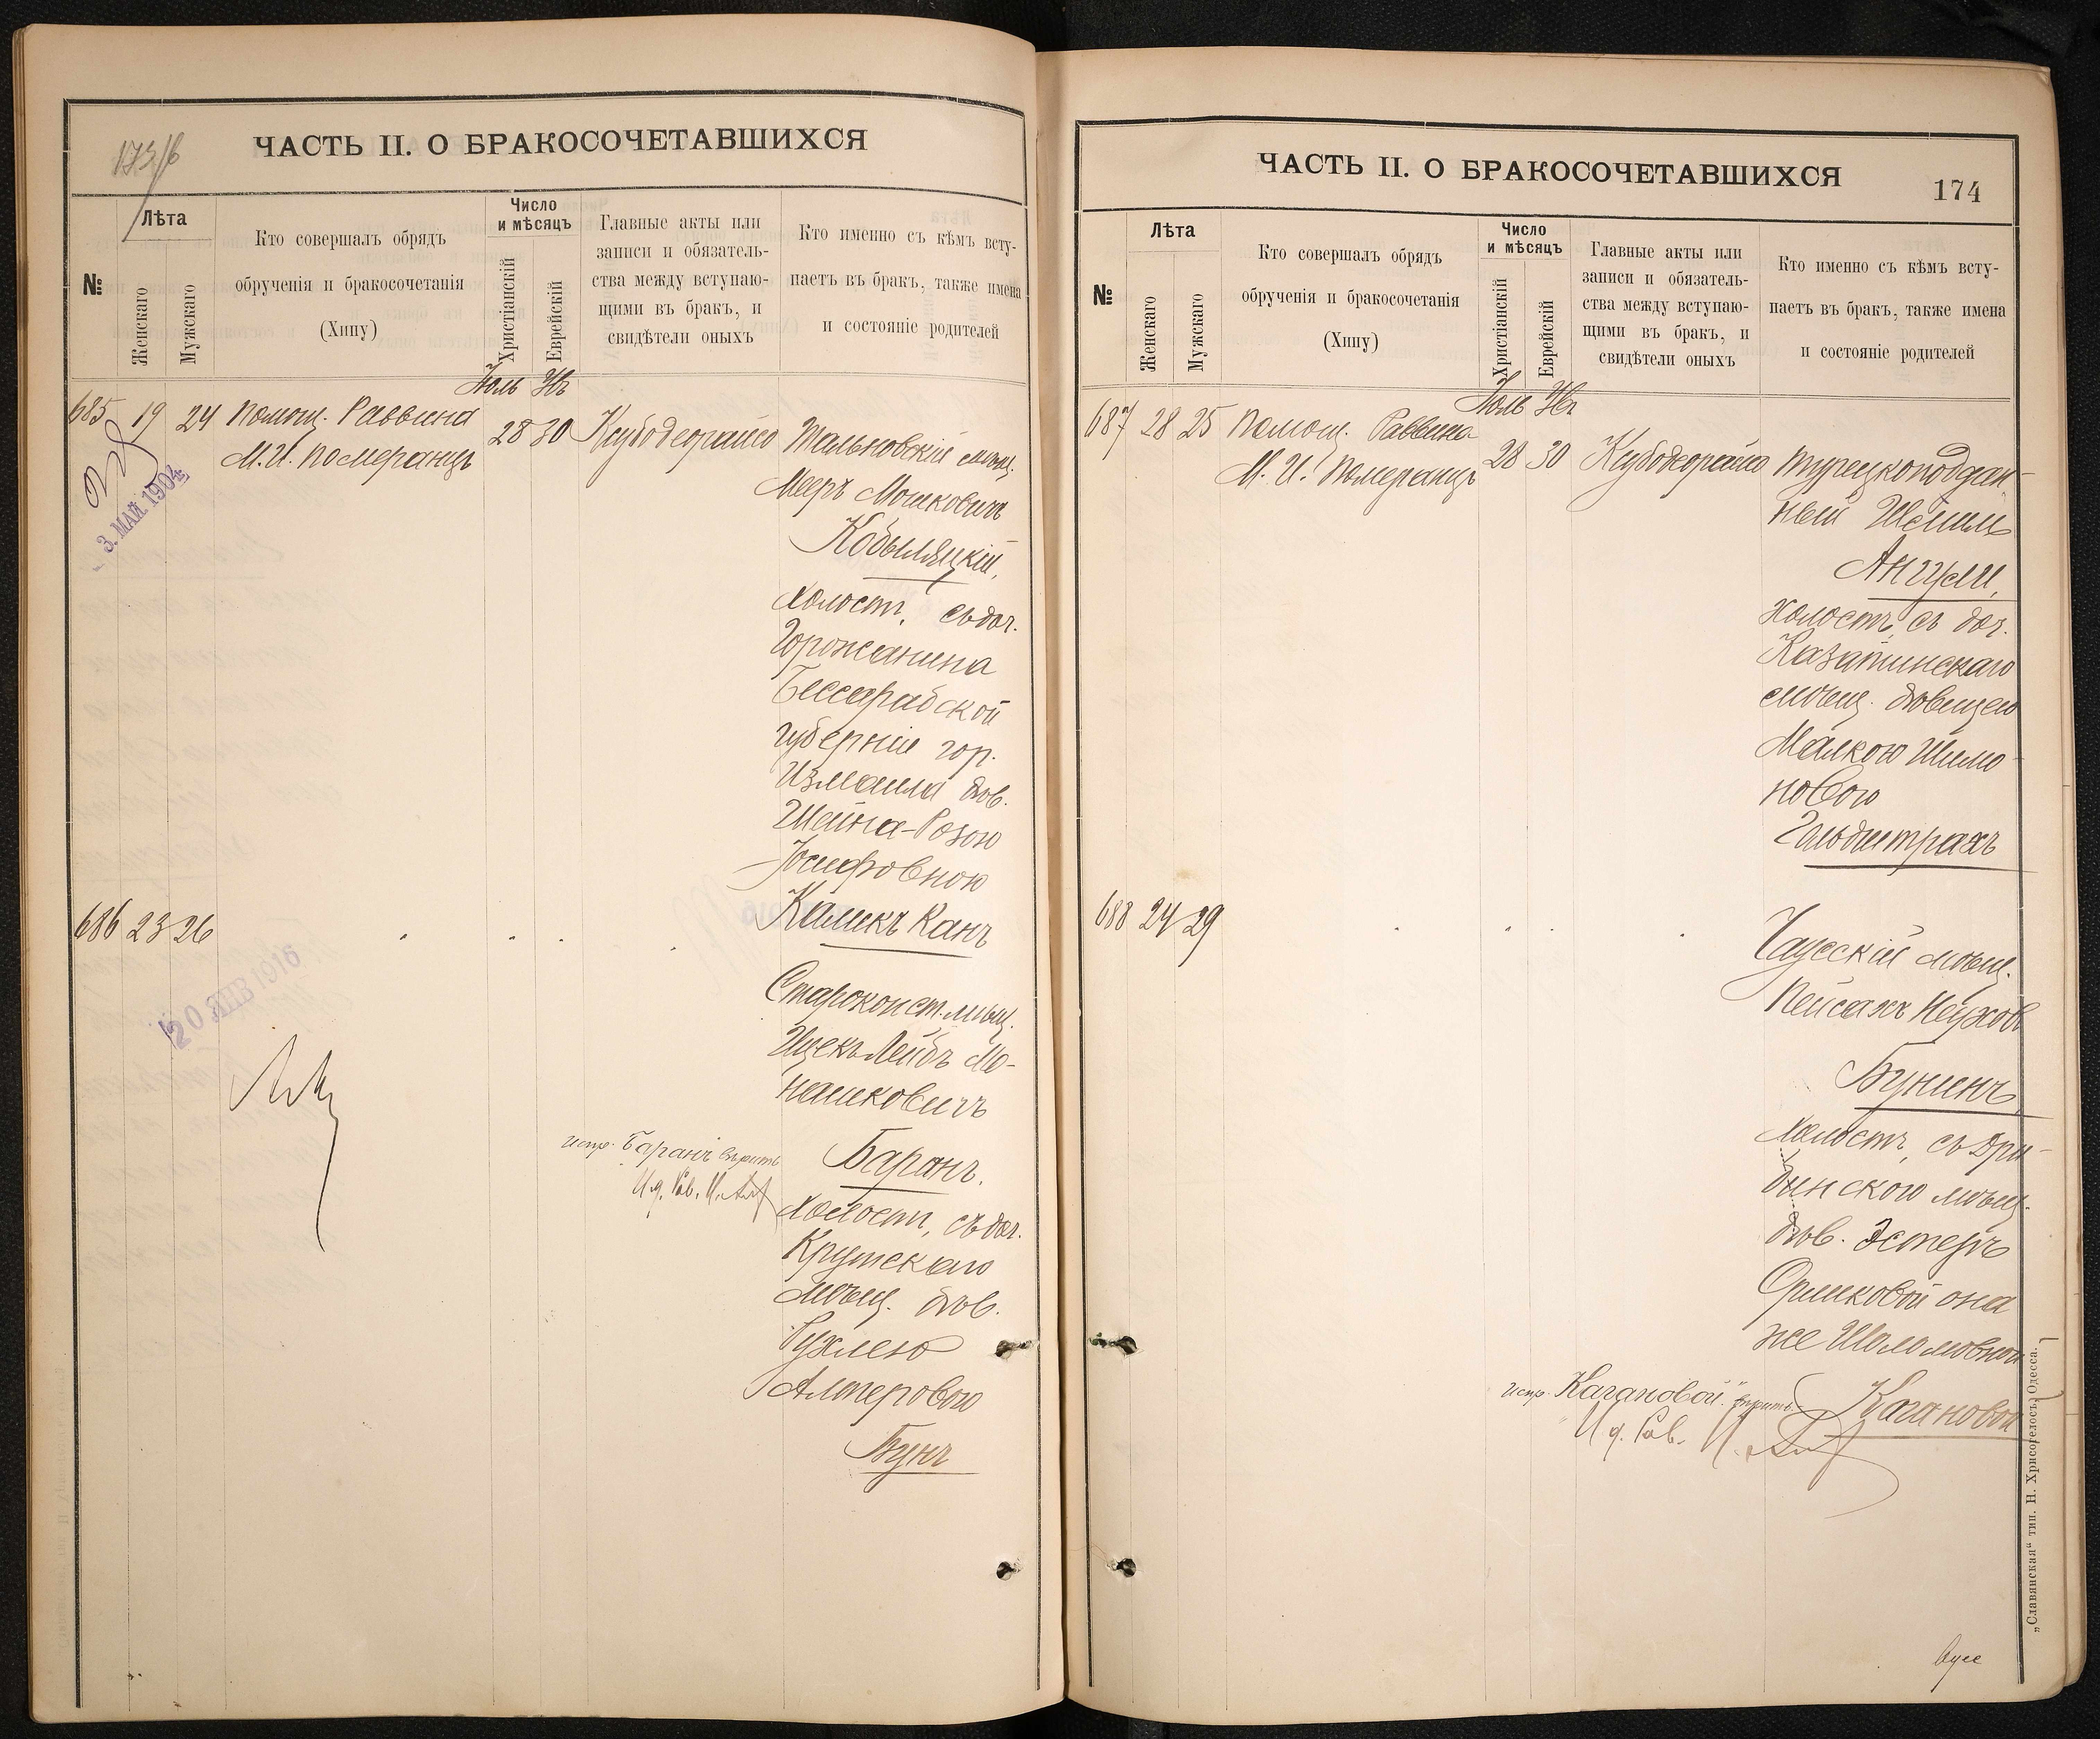 173/б
ЧАСТЬ II. О БРАКОСОЧЕТАВШИХСЯ
№
Лѣта
Женскаго
Мужскаго
Кто совершалъ обрядъ
обрученія и бракосочетанія
(Хипу)
Число
и мѣсяцъ
Христіанскій
Еврейскій
Главные акты или
записи и обязатель-
ства между вступаю-
щими въ бракъ, и
свидѣтели оныхъ
Кто именно съ кѣмъ всту-
паетъ въ бракъ, также имена
и состояніе родителей
Іюль
685 19 24 Помощ. Раввина
М. И. Померанцъ
28 30
Тальновскій мѣщ.
Мееръ Мошковичъ
Кобыляцкій,
холостъ, съ доч.
Горожанина
Бессарабской
губерніи гор.
Измаила дѣв.
Шейна-Розою
Іосифовною
3. МАЙ 1904
686 23 26
Каликъ Канъ
Староконст. мѣщ.
Ицекъ Лейбъ Мо-
нашковичъ
Баранъ.
холостъ, съ доч.
Крутскаго
мѣщ. дѣв.
Рухлею
Алтеровою
Бунъ
20 ЯНВ 1916
испр. Баранъ вѣрить
И. д. Рав.
ЧАСТЬ II. О БРАКОСОЧЕТАВШИХСЯ
174
№
Лѣта
Женскаго
Мужскаго
Кто совершалъ обрядъ
обрученія и бракосочетанія
(Хипу)
Число
и мѣсяцъ
Христіанскій
Еврейскій
Главные акты или
записи и обязатель-
ства между вступаю-
щими въ бракъ, и
свидѣтели оныхъ
Кто именно съ кѣмъ всту-
паетъ въ бракъ, также имена
и состояніе родителей
Іюль
687 28 25 Помощ. Раввина
М. И. Померанцъ
28 30
Турецкоподдан-
ный
холостъ, съ доч.
Казатинскаго
мѣщ. дѣвицею
Малкою Шимо-
новою
Гольдштрахъ
688 24 29
Чаусскій мѣщ.
Пейсахъ Неухов
Бунинъ,
холостъ, съ Дри-
бинскою мѣщ.
дѣв. Эстеръ
Оршковой она
же Шоломовной
Кагановой
испр. Кагановой вѣрить
И. д. Рав.
„Славянская“ тип. Н. Хрисогелосъ, Одесса.